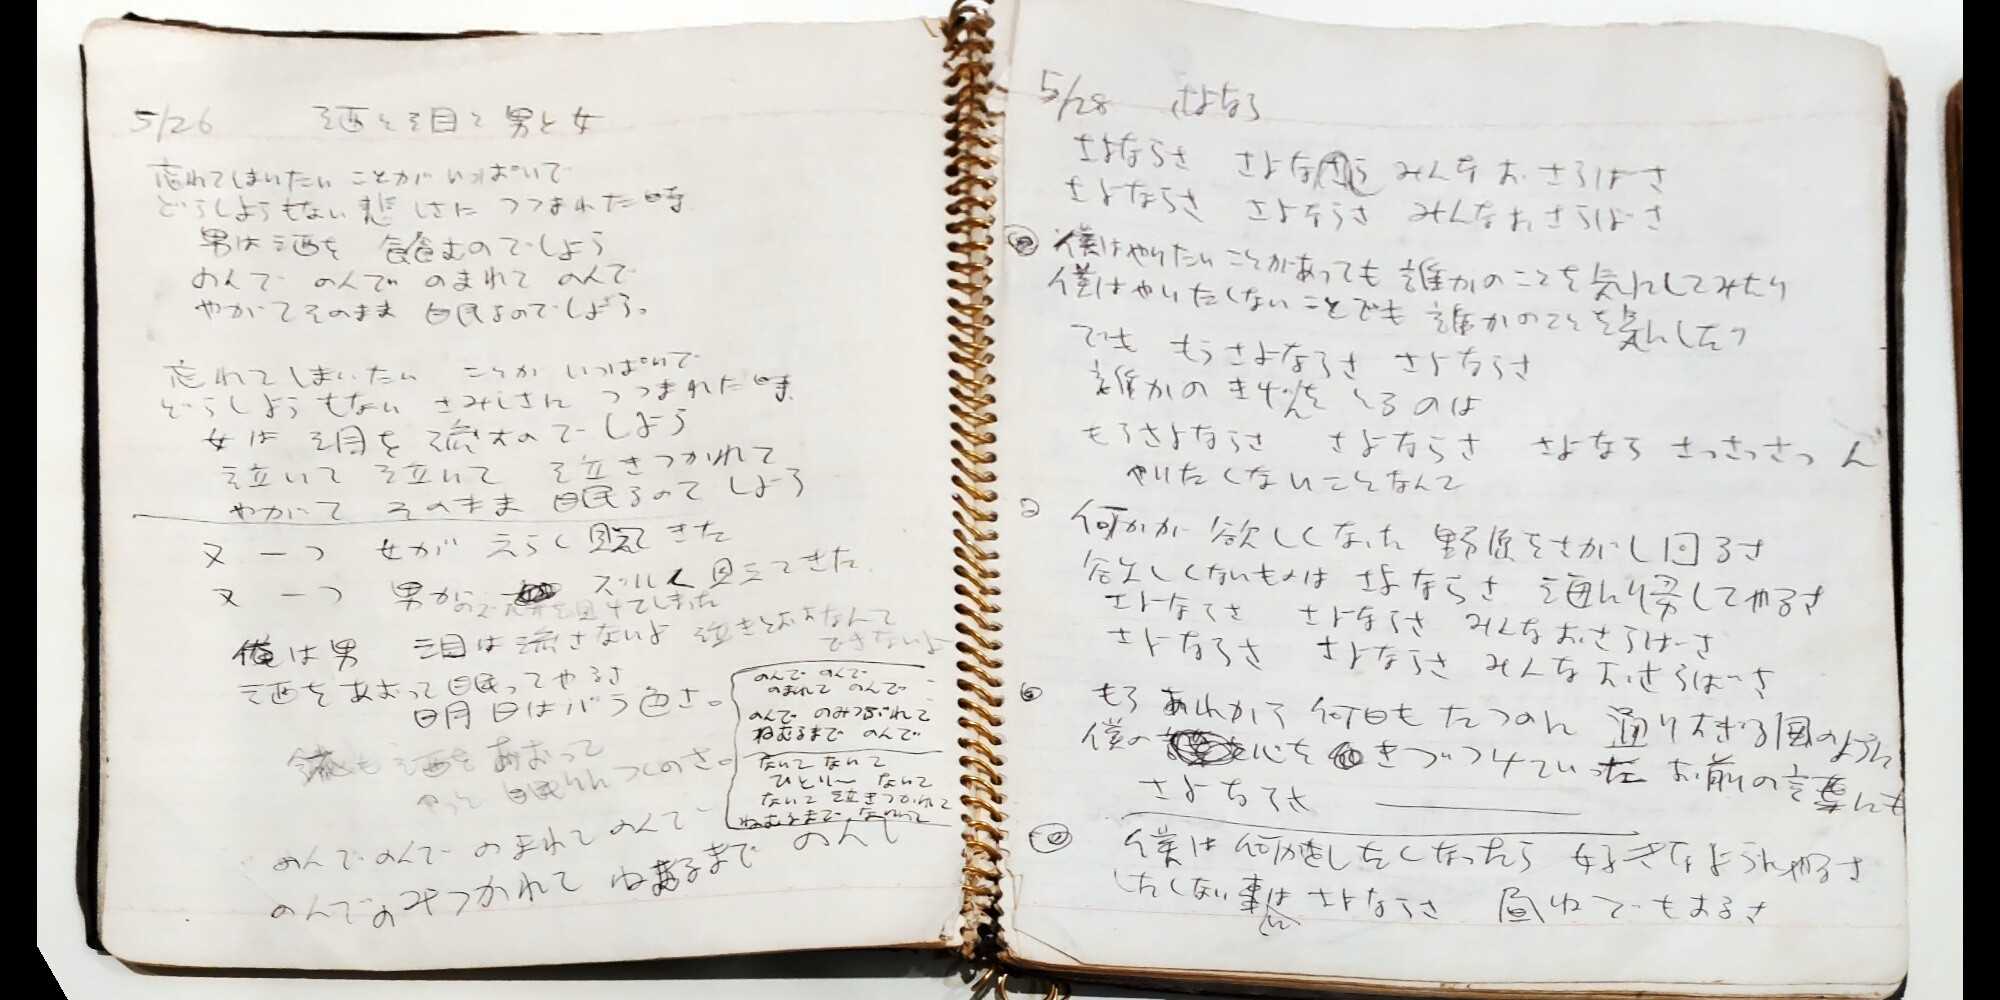 5/26 酒と泪と男と女
忘れてしまいたい ことが いっぱいで
どうしようもない 悲しさに つつまれた時
男は酒を 飲むのでしよう
のんで のんで のまれて のんで
やがてそのまま 眠るのでしよう。
忘れてしまいたい ことが いっぱいで
どうしようもない さみしさに つつまれた時
女は 泪を 流すのでしよう
泣いて 泣いて 泣きつかれて
やがて そのまま 眠るのでしよう
又一つ 女が えらく 見えてきた
又一つ 男が ズルく 見えてきた
俺は男 泪は流さないよ 泣きとおすなんて
できないよ
酒をあおって 眠ってやるさ
明日はバラ色さ。
俺も 酒を あおって
やっと 眠りにつくのさ。
のんで のんで
のまれて のんで
のんで のみつぶれて
ねむるまで のんで
ないて ないて
ひとり〜 ないて
ないて 泣きつかれて
ねむるまで ないて
のんで のんで のまれて のんで
のんでのみつかれて ねむるまで のんで
5/28 さよなら
さよならさ さよならさ みんな おさらばさ
さよならさ さよならさ みんなおさらばさ
僕はやりたい ことがあっても 誰かのことを 気にしてみたり
僕はやりたくない ことでも 誰かのことを 気にしたり
でも もうさよならさ さよならさ
誰かの きげんを とるのは
もうさよならさ さよならさ さよなら さっさっさっ
やりたくないことなんて
2 何かが 欲しくなった 野原をさがし回るさ
欲しくないものは さよならさ 海に帰してやるさ
さよならさ さよならさ みんなおさらばさ
さよならさ さよならさ みんな おさらばさ
もう あれから 何日も たつのに 通りすぎる風のように
僕の 心を きづつけていった お前の言葉にも
さよならさ
僕は 何かをしたくなったら 好きなようにやるさ
したくない事は さよならさ 昼ねでもするさ